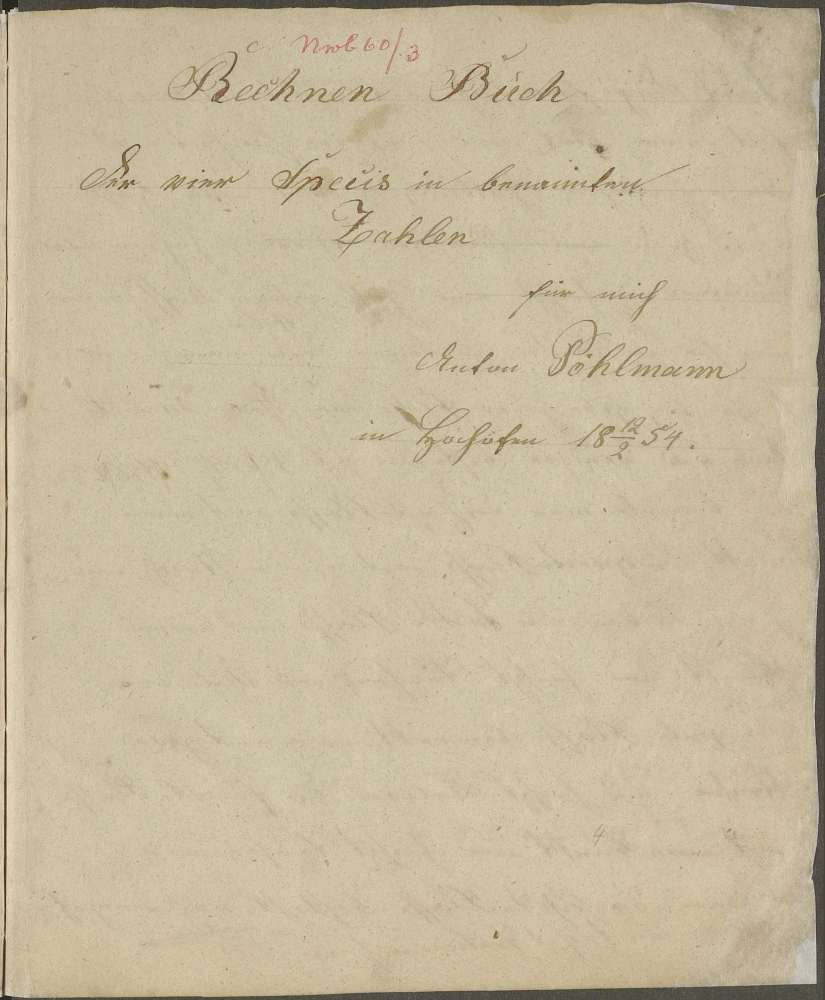 Nwb 60/3
Rechnen Buch
Der vier Specis in benannten
Zahlen
für mich
Anton Pöhlmann
in Hochofen 18 12/2 54.
4